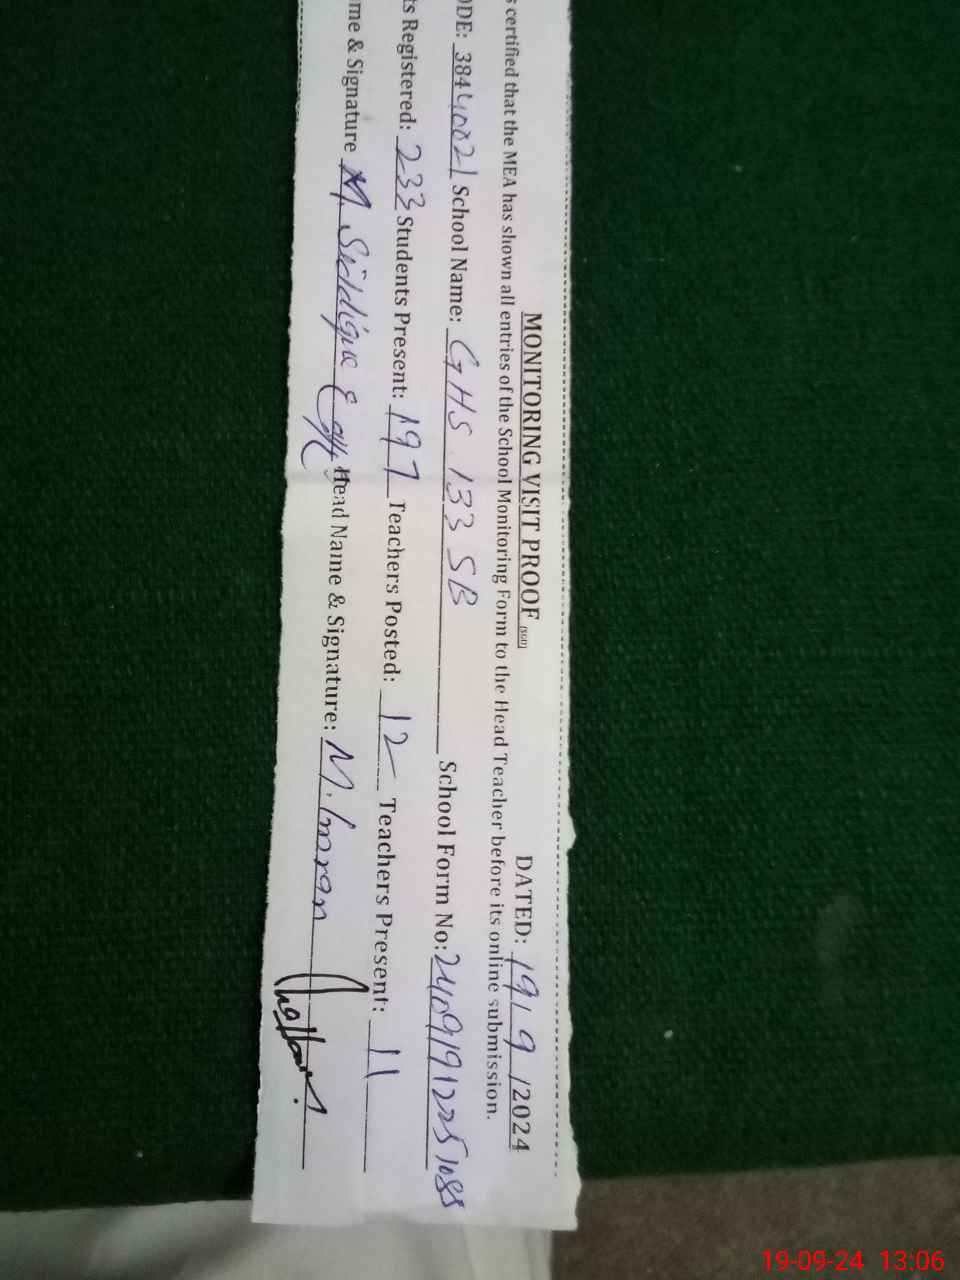 MONITORING VISIT PROOF (SGD) DATED: 19/9/2024
s certified that the MEA has shown all entries of the School Monitoring Form to the Head Teacher before its online submission.
ODE: 38440021 School Name: GHS 133 SB School Form No: 24091912251088
ts Registered: 233 Students Present: 197 Teachers Posted: 12 Teachers Present: 11
me & Signature M Siddique Head Name & Signature: M. Imran
19-09-24 13:06